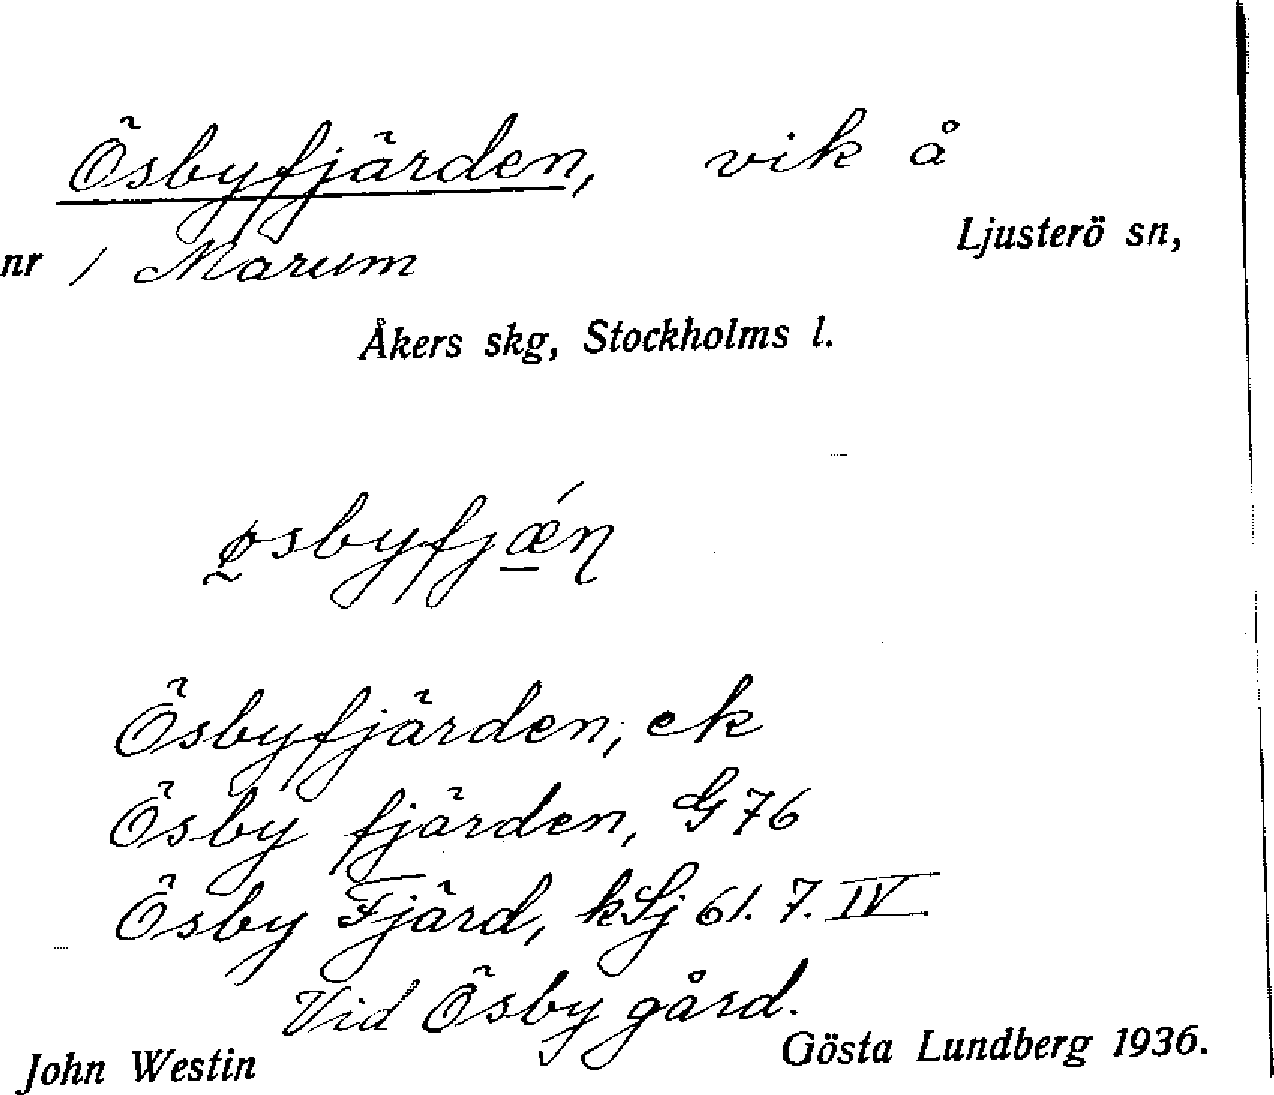 Ösbyfjärden, vik å
Ljusterö sn,
nr / Marum
Åkers skg, Stockholms l.
Ösbyfjärden, ek
Ösby fjärden, G 76
Ösby Fjärd, kSj 61. 7. IV.
Vid Ösby gård.
John Westin Gösta Lundberg 1936.